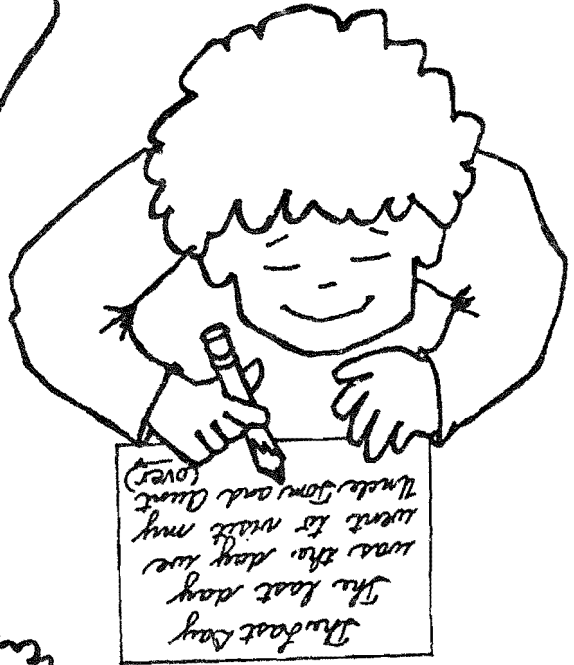 The Last Day
The last day
was the day we
went to visit my
Uncle Tom and Aunt
(over)